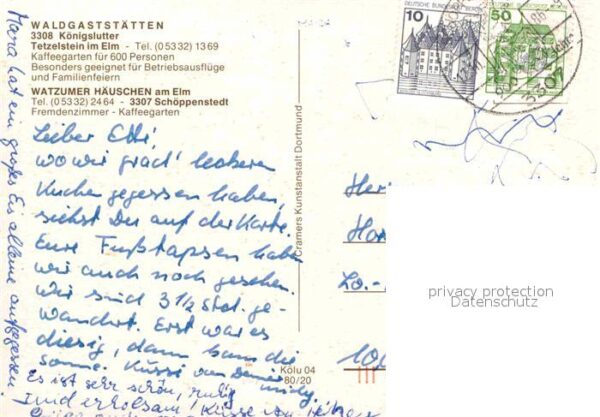 WALDGASTSTÄTTEN
3308 Königslutter
Tetzelstein im Elm - Tel. (05332) 1369
Kaffeegarten für 600 Personen
Besonders geeignet für Betriebsausflüge
und Familienfeiern
WATZUMER HÄUSCHEN am Elm
Tel. (05332) 2464 - 3307 Schöppenstedt
Fremdenzimmer - Kaffeegarten
Lieber Edi,
wo wir grad' leckeren
Kuchen gegessen haben,
siehst Du auf der Karte.
Eure Fußtapsen haben
wir auch noch gesehen.
Wir sind 3 1/2 Std. ge-
wandert. Erst war es
diesig, dann kam die
Sonne. Küsse von
Es ist sehr schön, ruhig
und erholsam, Küsse von
Mara hat ein großes Eis alleine aufgegessen.
Cramers Kunstanstalt Dortmund
Kölu 04
80/20
10
DEUTSCHE BUNDESPOST BERLIN
50
Her
Lo.-
100
privacy protection
Datenschutz